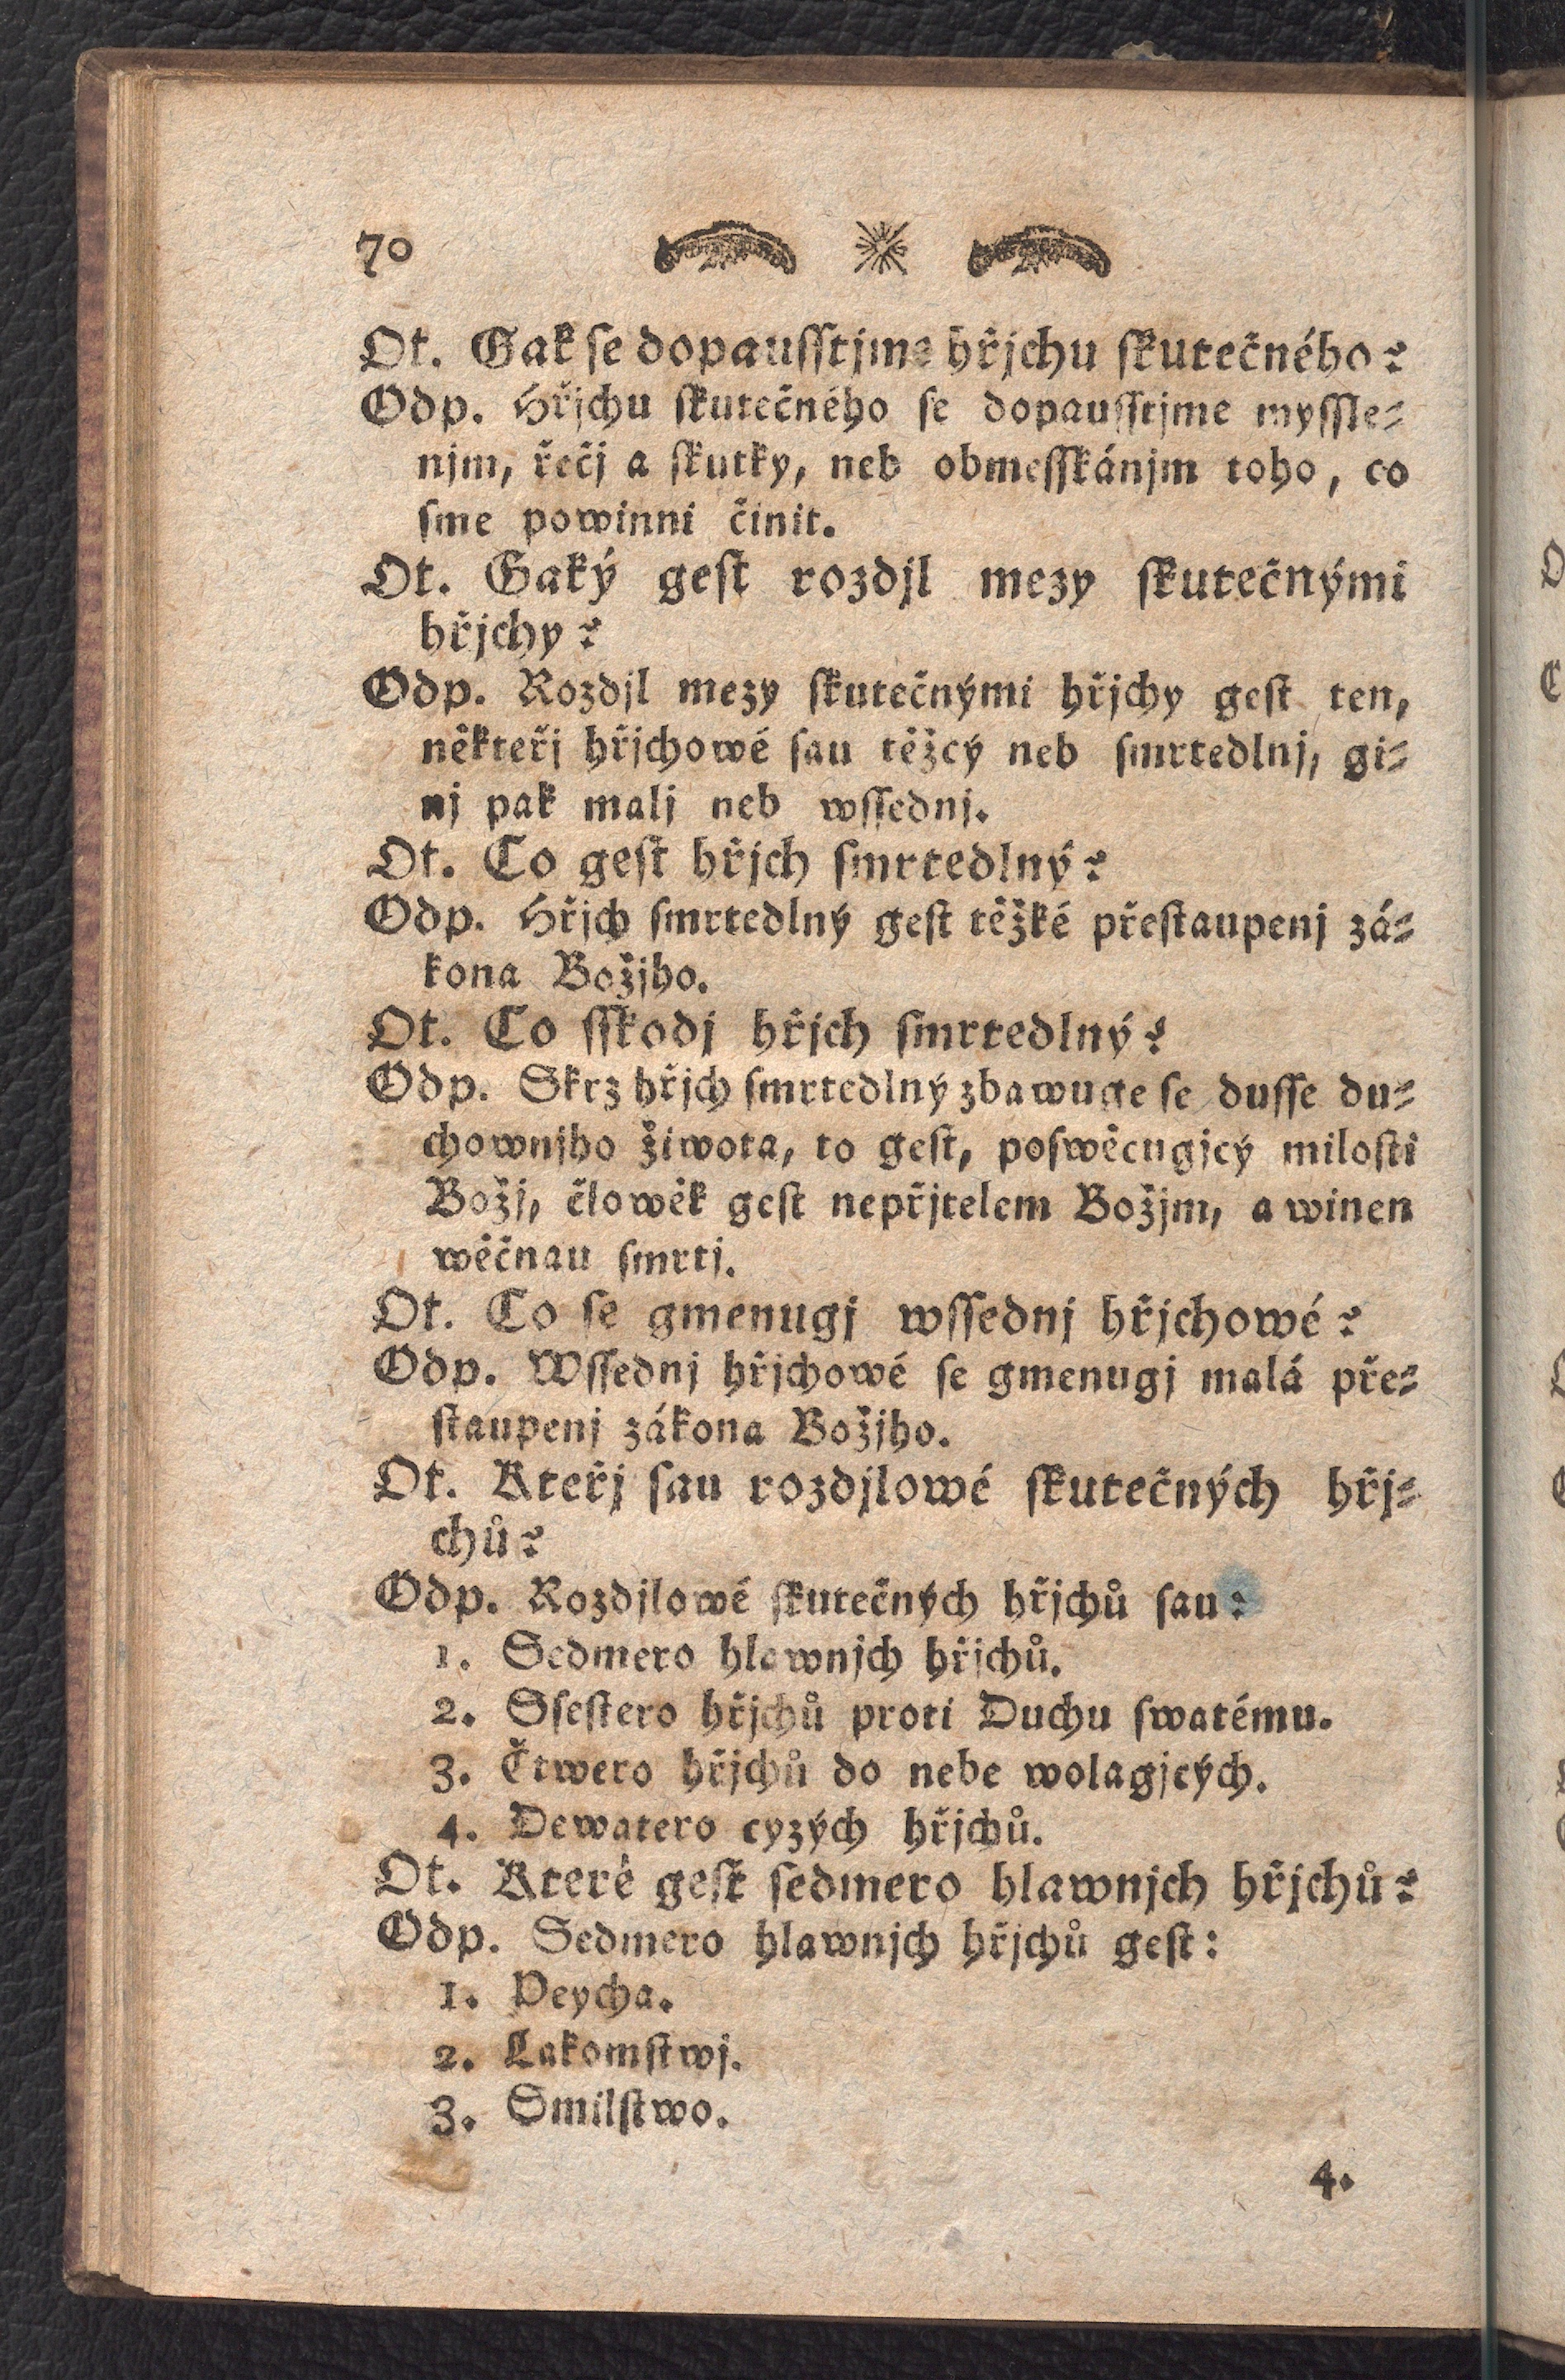 70
Ot. Gak ſe dopauſſtjme hřjchu ſkutečného?
Odp. Hřjchu ſkutečného ſe dopauſſtjme myſſle-
njm, řečj a ſkutky, neb obmeſſkánjm toho, co
ſme powinni činit.
Ot. Gaký geſt rozdjl mezy ſkutečnými
hřjchy?
Odp. Rozdjl mezy ſkutečnými hřjchy geſt ten,
někteřj hřjchowé ſau těžcý neb ſmrtedlnj, gi-
nj pak malj neb wſſednj.
Ot. Co geſt hřjch ſmrtedlný?
Odp. Hřjch ſmrtedlný geſt těžké přeſtaupenj zá-
kona Božjho.
Ot. Co ſſkodj hřjch ſmrtedlný?
Odp. Skrz hřjch ſmrtedlný zbawuge ſe duſſe du-
chownjho života, to geſt, poſwěcugjcý miloſti
Božj, človek geſt nepřjtelem Božjm, a winen
wěčnau ſmrtj.
Ot. Co ſe gmenugj wſſednj hřjchowé?
Odp. Wſſednj hřjchowé ſe gmenugj malá pře-
ſtaupenj zákona Božjho.
Ot. Kteřj ſau rozdjlowé ſkutečných hřj-
chů?
Odp. Rozdjlowé ſkutečných hřjchů ſau:
1. Sedmero hlawnjch hřjchů.
2. Sſeſtero hřjchů proti Duchu ſwatému.
3. Čtwero hřjchů do nebe wolagjcých.
4. Dewatero cyzých hřjchů.
Ot. Které geſt ſedmero hlawnjch hřjchů?
Odp. Sedmero hlawnjch hřjchů geſt:
1. Peycha.
2. Lakomſtwj.
3. Smilſtwo.
4.